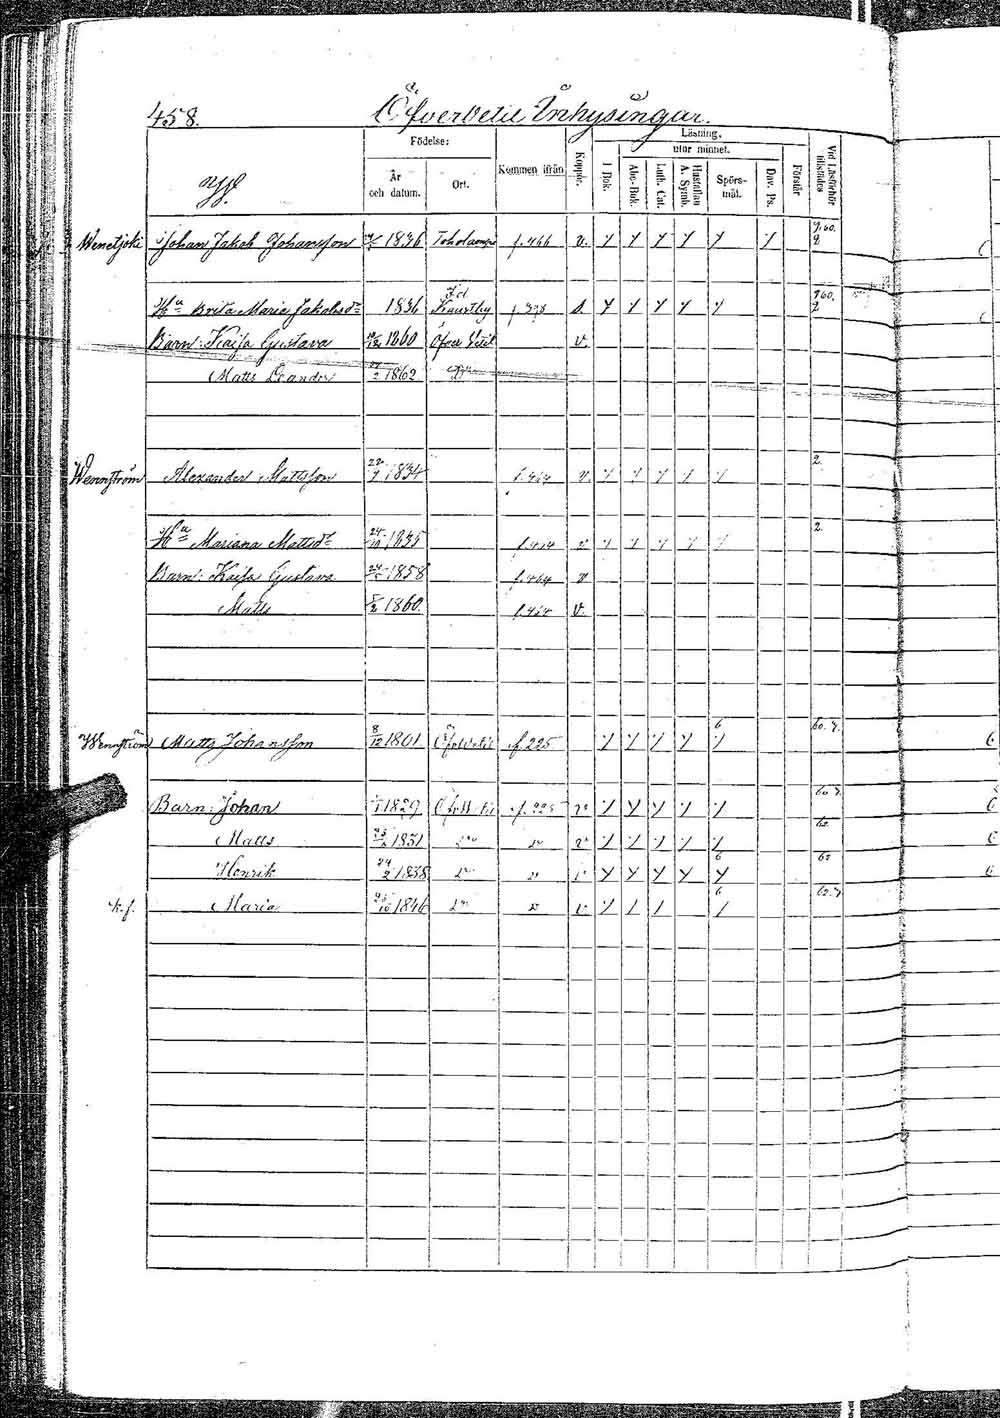 458. Öfvervetil Inhysingar.
Födelse: Läsning,
utur minnet.
År och datum. Ort. Kommen ifrån Koppor. I Bok. Abc-Bok. Luth. Cat. Hustaflan A. Symb. Spörs-mål. Dav. Ps. Förstår Vid Läsförhör tillstädes
W.
Wenetjoki Johan Jakob Johansson 1836 Toholampi f. 466 v.
Hu Brita Maria Jakobsdr 1836 Kaustby v.
Barn: Kajsa Gustava 1860 Öfver Vetil v.
Matts Leander 1862 Do
Wennström Alexander Mattsson 22/7 1834 f. 464 v.
Hu Mariana Mattsdr 24/10 1835 f. 464 v
Barn: Kajsa Gustava 1858 f. 464 v
Matts 1860. f. 464 v.
Wennström Matts Johansson 8/12 1801 Öfvetil f. 225 6 60. 7.
Barn: Johan 1829 f. 225 v
Matts 1831 Do v 62
Henrik 24/2 1838 Do v 6 62
k.f. Maria 1846 Do v 6 62. 7.